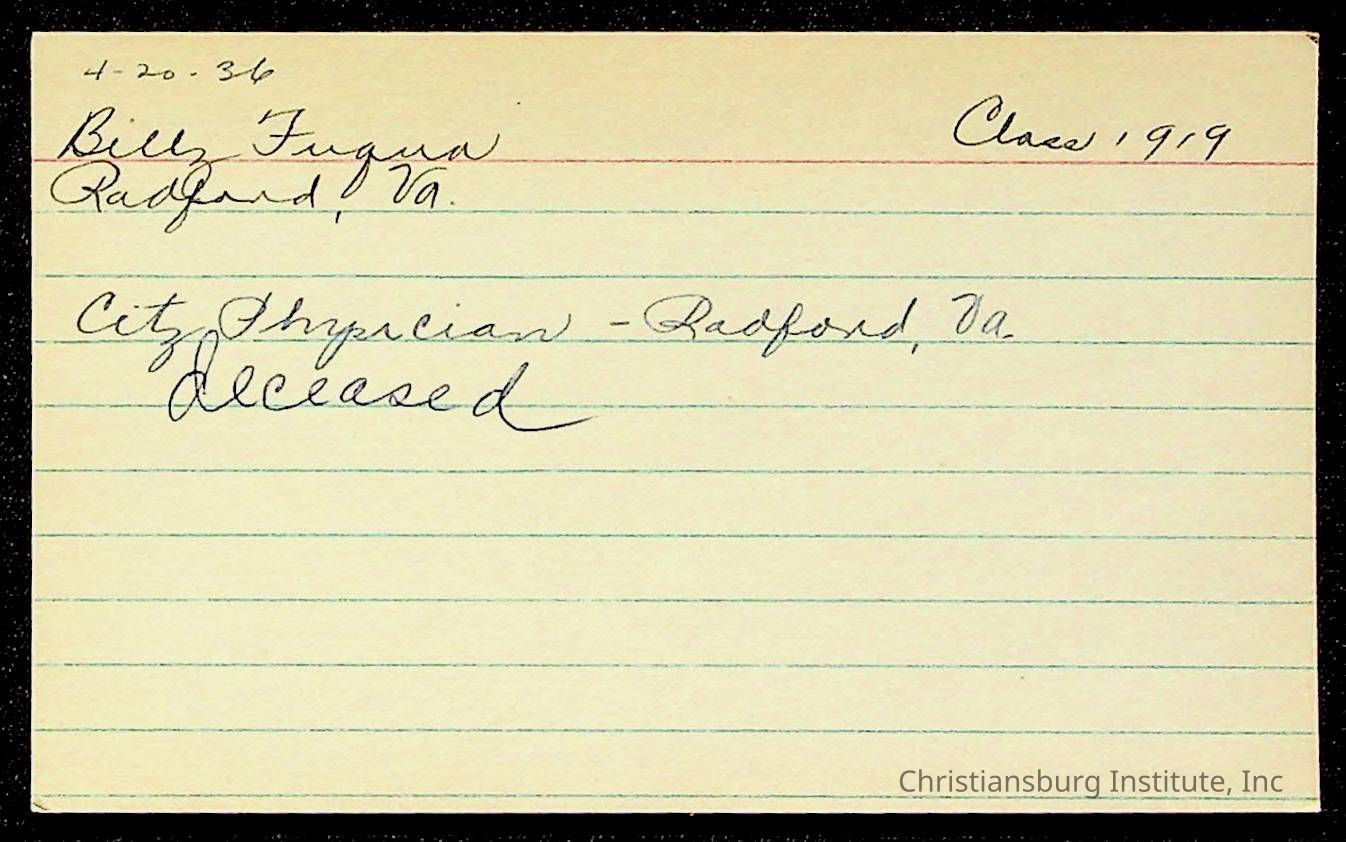 4-20-36
Billy Fuqua
Class 1919
Radford, Va.
City Physician - Radford, Va.
deceased
Christiansburg Institute, Inc